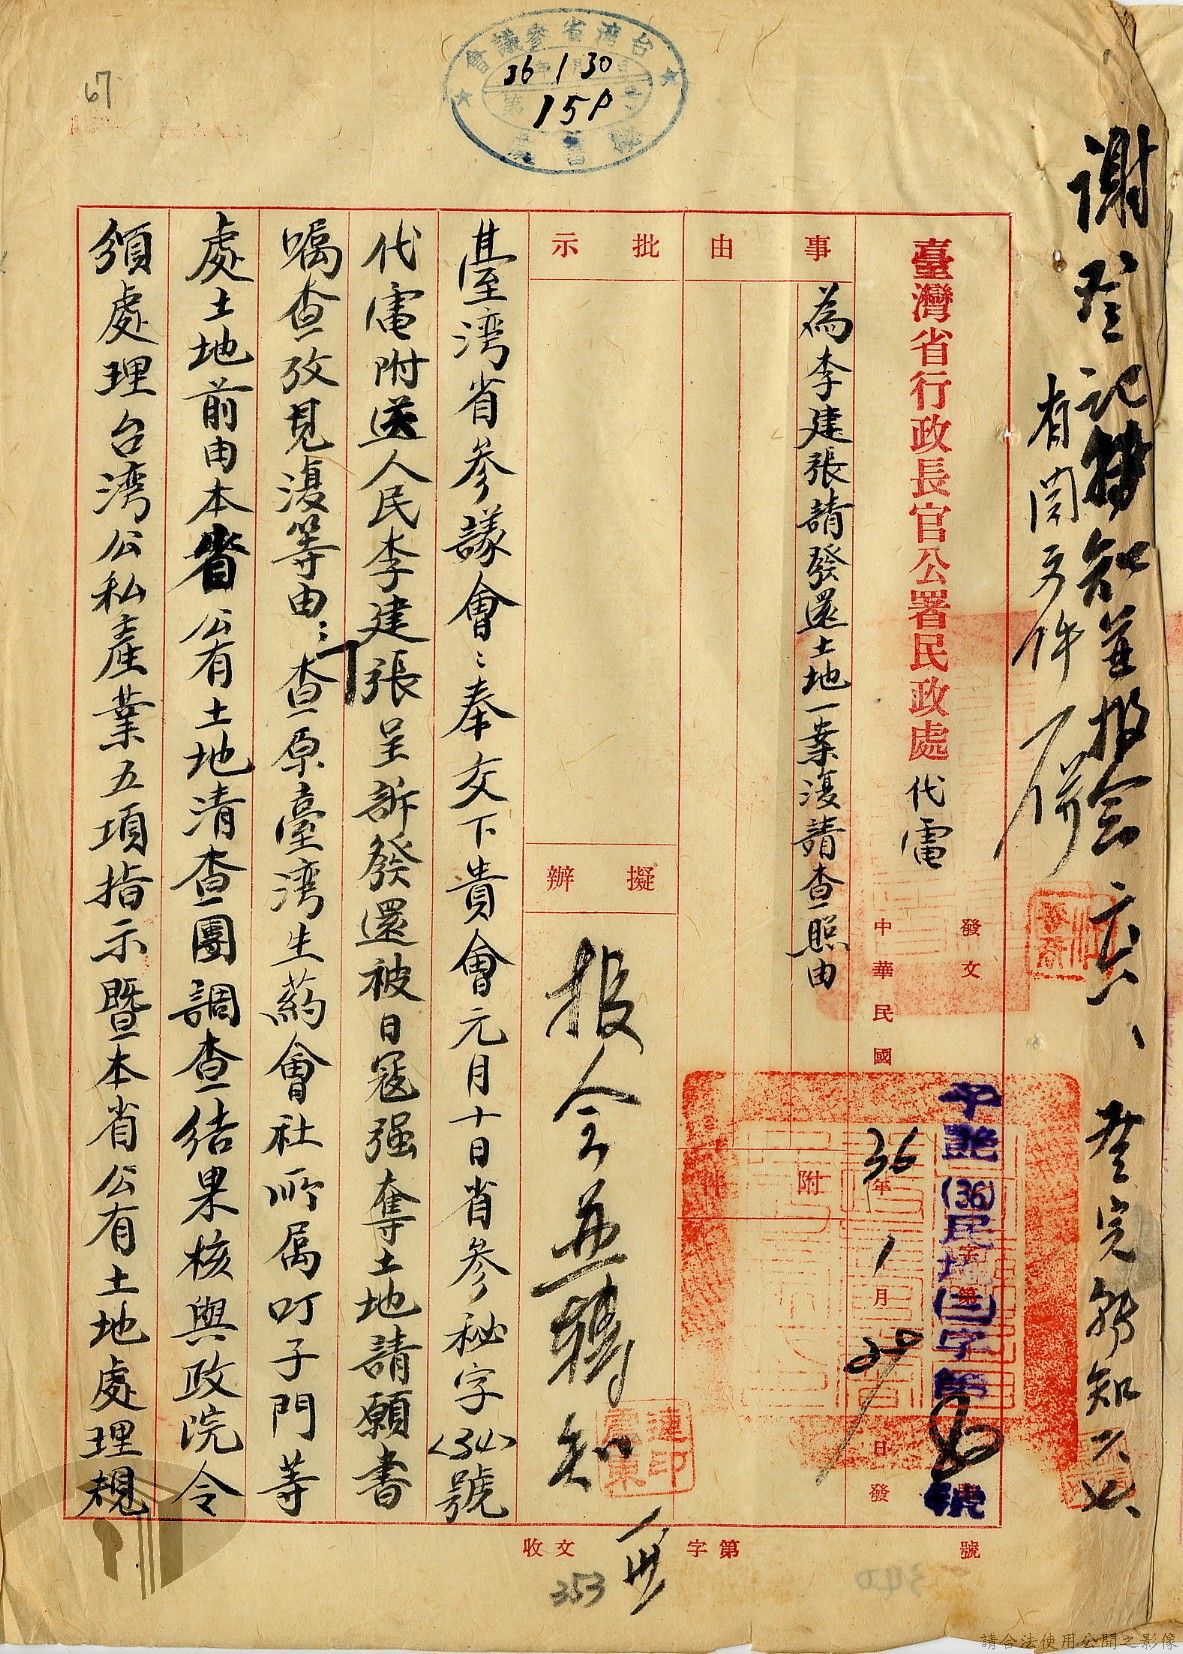 台灣省參議會
36 1 30
15P
67
謝 登記 轉知並報会
有関文件
一併
臺灣省行政長官公署民政處 代電
發文
中華民國36年1月28日發
號
事由
為李建張請發還土地一案復請查照由
附件
批示
擬辦
报会並轉知
臺湾省參議會：奉交下貴會元月十日省參秘字(34)號
代電附送人民李建張呈訴發還被日寇强奪土地請願書
嘱查攷見復等由：查原臺湾生葯會社所属叮子門等
處土地前由本省公有土地清查團調查结果核與政院令
頒處理台湾公私產業五項指示暨本省公有土地處理規
收文 字第 號
353
340
請合法使用公開之影像